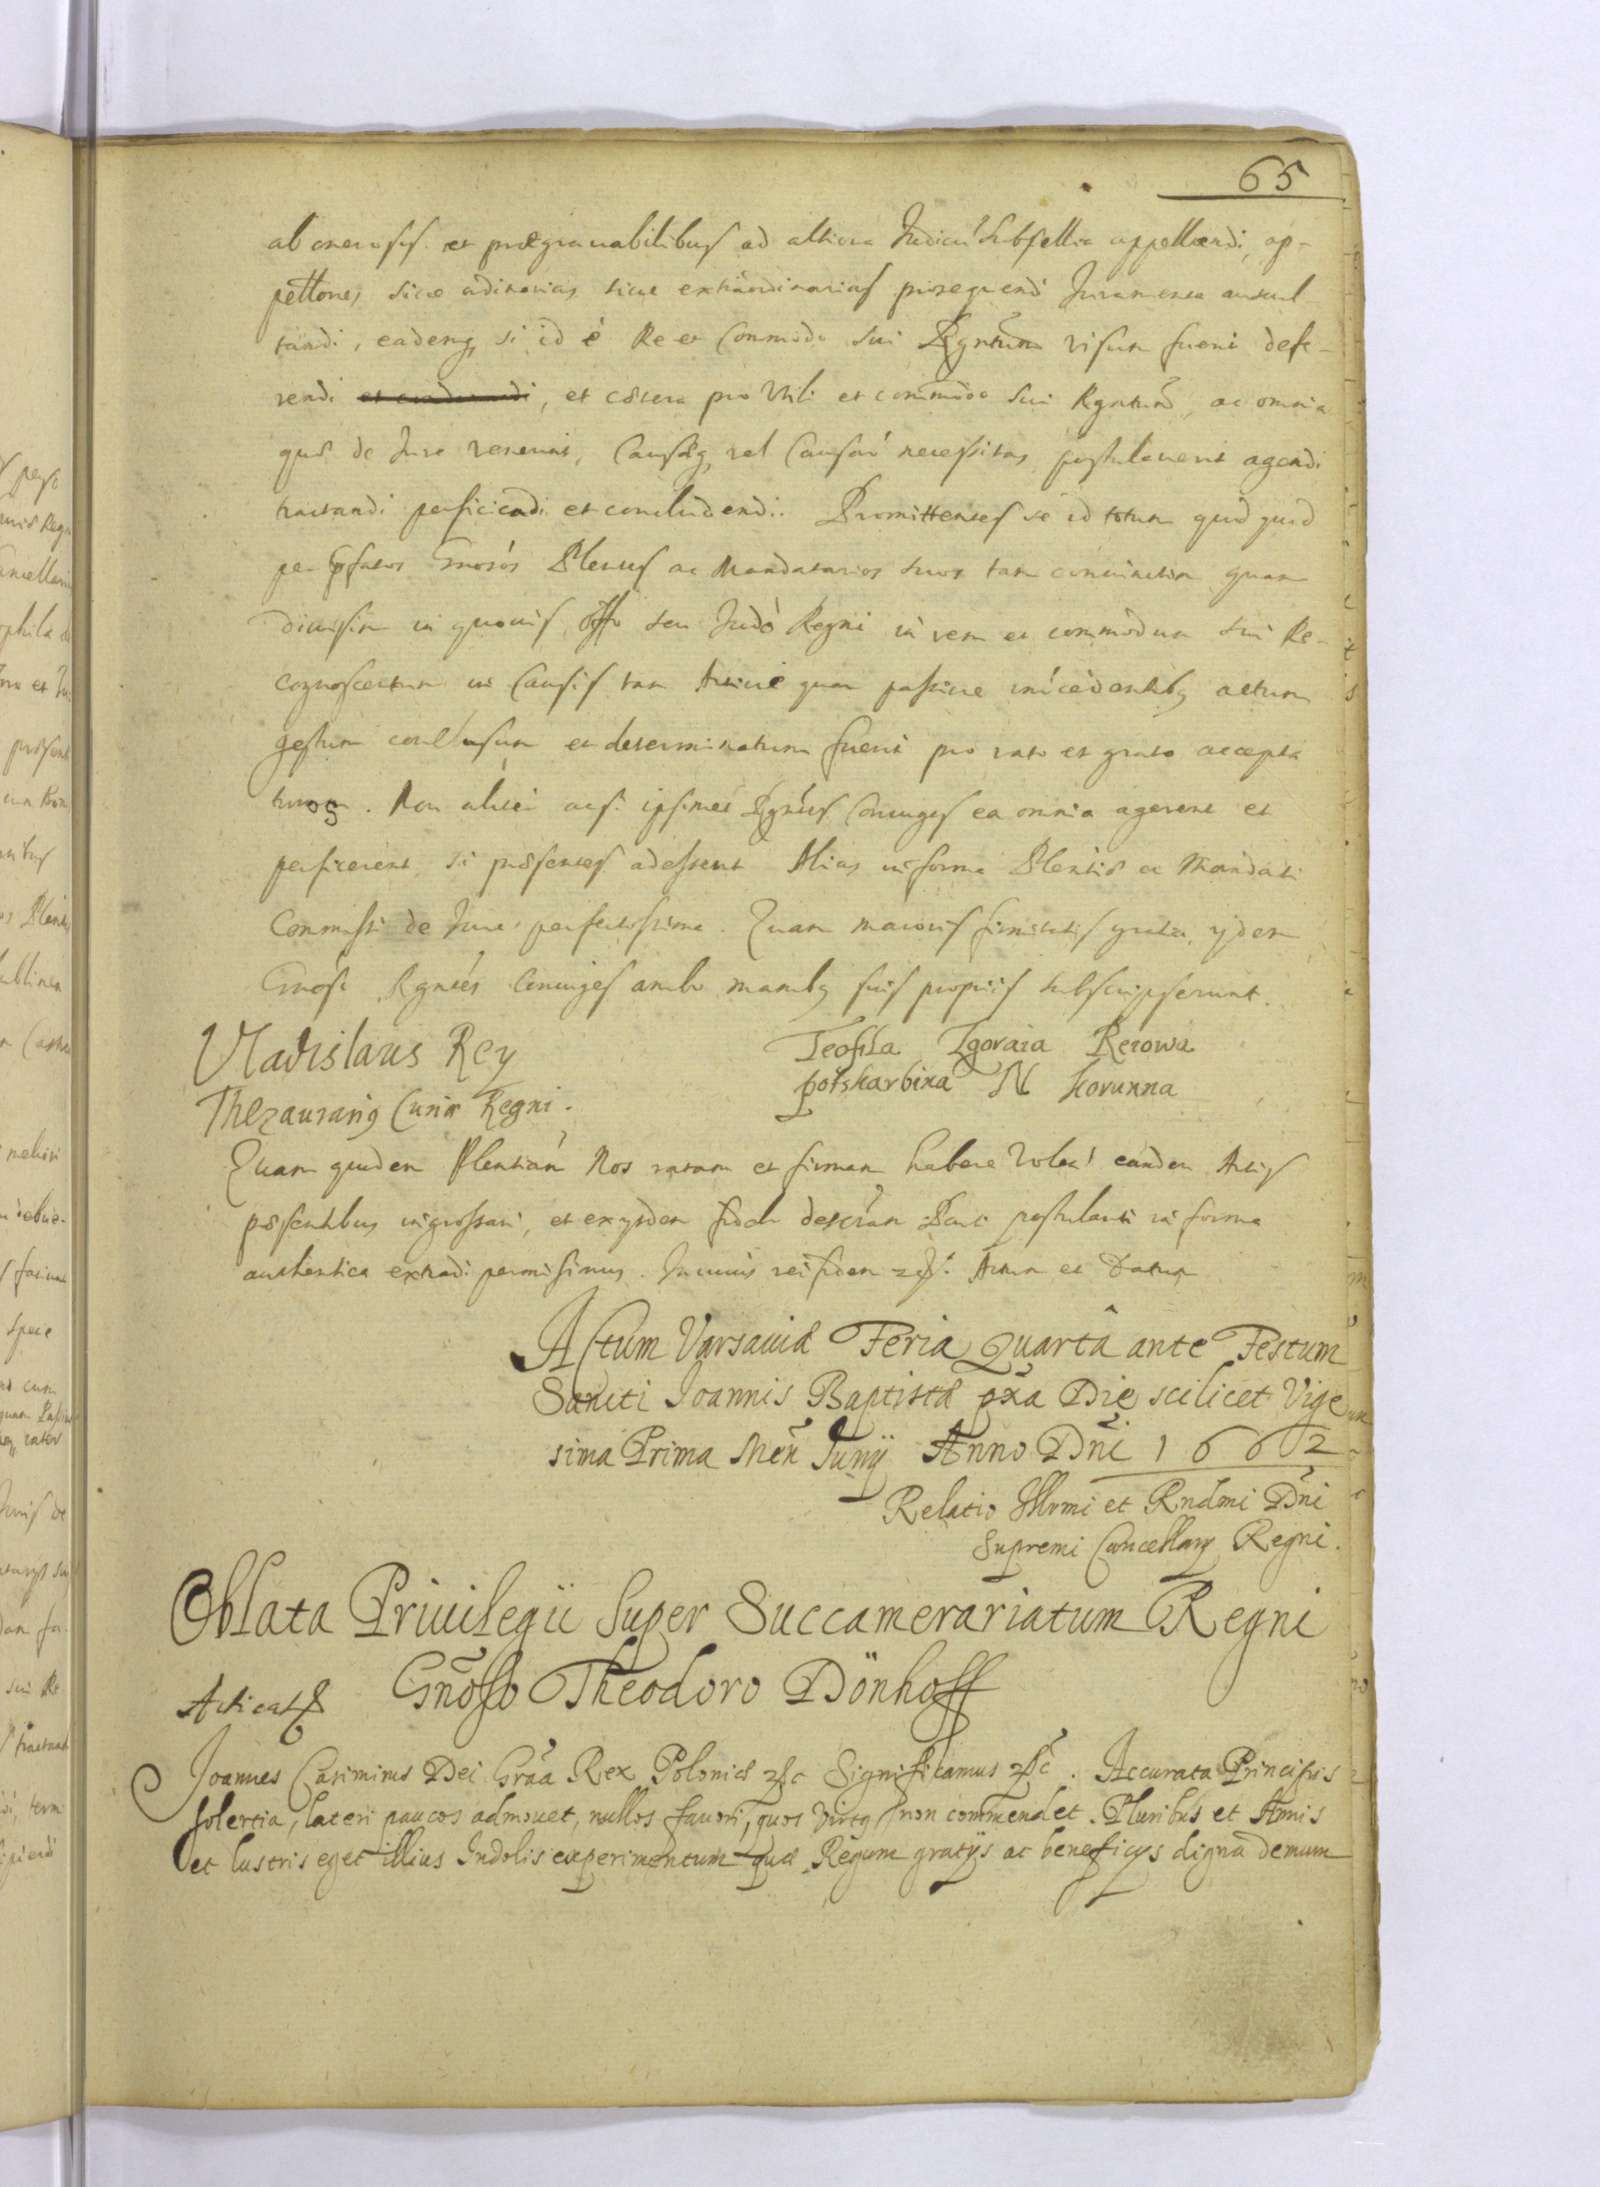 65
ab onerosis et prægrauabilibus ad altiora Judicū Subsellia appellandi, ap-
pellōnes siue ordinarias siue extraordinarias prosequendi Juramenta auscul
tandi, eademq, si id è Re et Commodo sui Prn̄cipalium visum fuerit defe-
rendi et cætera pro Utili et commodo sui Rgntium, ac omnia
quæ de Jure venerint, Causæq, vel Causarū necessitas postulauerit agendi
tractandi perficiēdi et concludendi. Promittentes se id totum quod quid
per Prfatos Gnosos Plenos ac Mandatarios suos tam coniunctim quam
diuisim in quouis Offo seu Judo Regni in rem et commodum sui Re-
cognoscentium in Causis tam Actiue quam passiue incedentibq actum
gestum conclusum et determinatum fuerit pro rato et grato accepta
turos. Non aliter acsi ipsimet Rgntes Coniuges ea omnia agerent et
perficerent si præsentes adessent Alias in forma Plentiæ ac Mandati
Commissi de Jure perfectissima. Quam maioris firmitatis gratia, ydem
Gnosi Rgntes Coniuges ambo manibq suis propriis subscripserunt.
Vladislaus Rey
Thezaurariq Curiæ Regni.
Teofila Zgoraia Reiowa
potskarbina N Korunna
Quam quidem Plentiam Nos ratam et firmam habere Volen eandem Actis
præsentibus ingrossari, et exysdem fideli descrām Parti postulanti in forma
authentica extradi permisimus. In cuius rei fidem &c. Actum et Datum
Actum Varsauiæ Feria Quarta ante Festum
Sancti Joannis Baptistæ pxa Die scilicet Vige
sima Prima Men Junij Anno Dni 1662
Relatio Illrmi et Rndmi Dni
Supremi Cancellarij Regni.
Oblata Priuilegii super Succamerariatum Regni
Gnoso Theodoro Dönhoff
Acticatæ
Joannes Casimirus Dei Grãa Rex Poloniæ &c Significamus &c. Accurata Principis
solertia, lateri paucos admouet, nullos fauori, quos Virtq non commendet. Pluribus et Annis
et lustris eget illius Indolis experimentum quæ Regum gratijs ac beneficijs digna demum